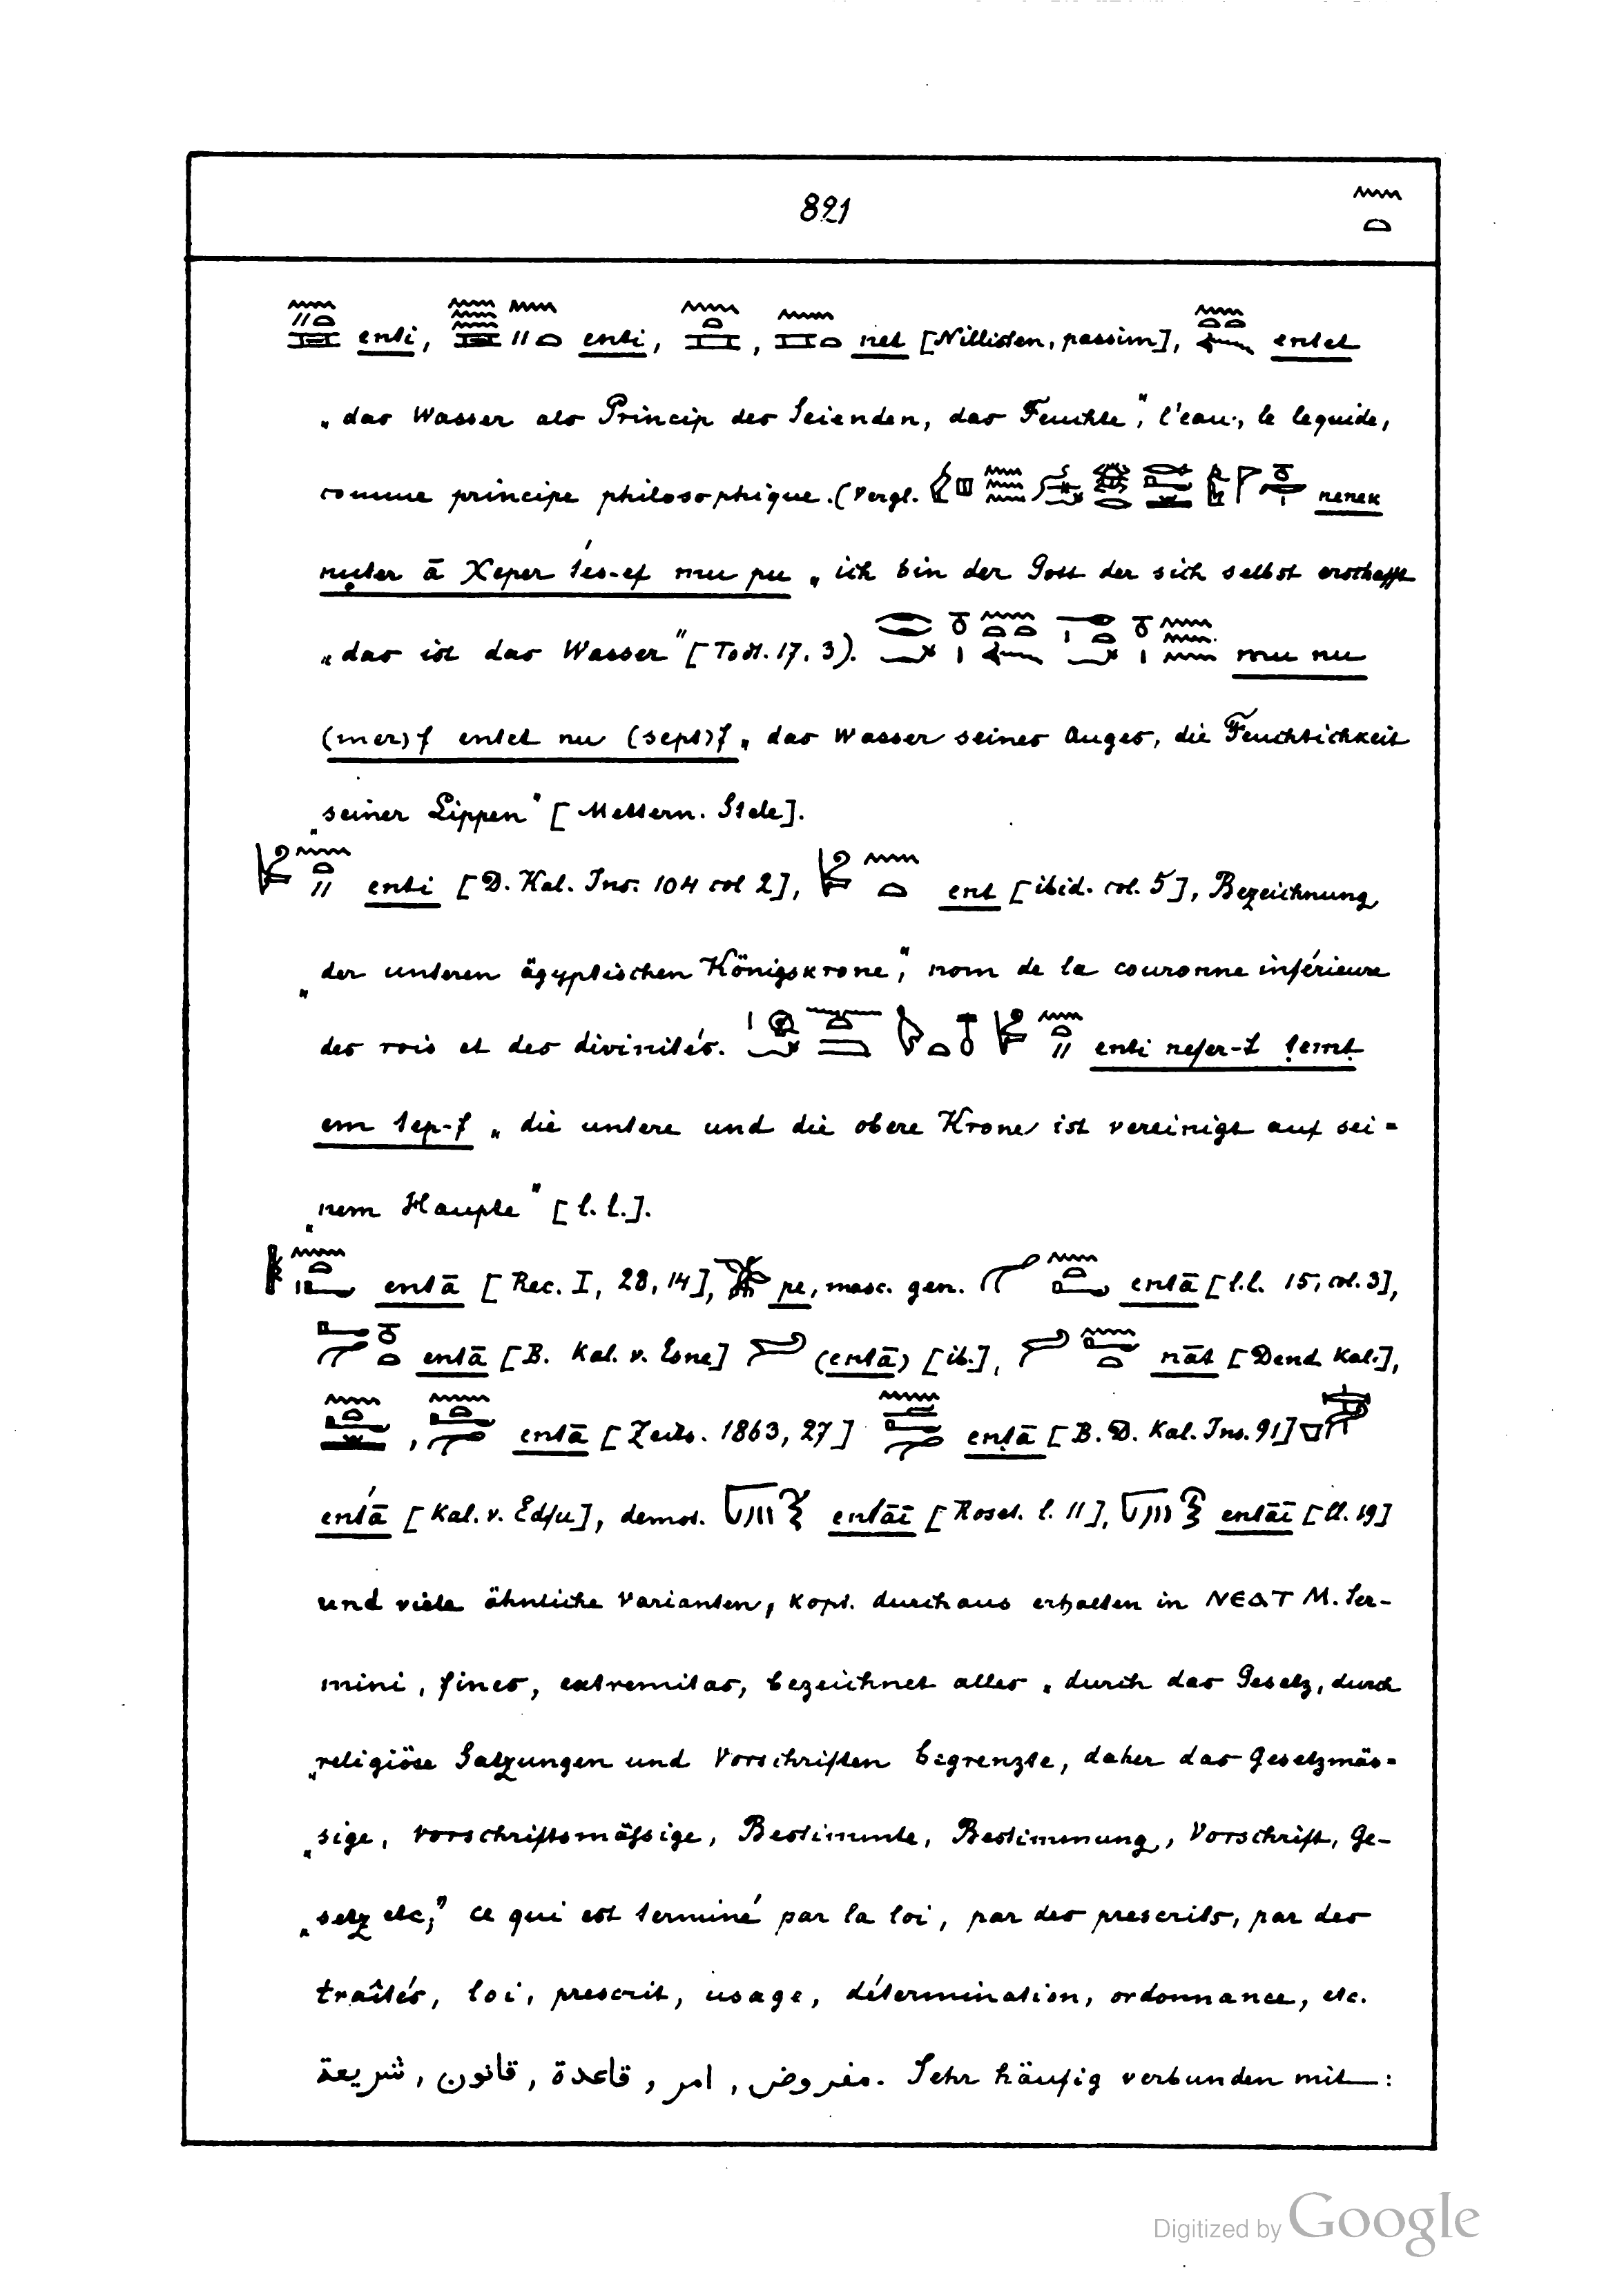 821
enti, enti, net [Nillisten, passim], entet
„das Wasser als Princip des Seienden, das Feuchte", l'eau, le lequide,
comme principe philosophique. (Vergl. nenek
nuter ā Xeper tes-ef mu pu „ich bin der Gott der sich selbst erschafft
„das ist das Wasser" [Todt. 17, 3). mu nu
(mer)f entet nu (sept)f „das Wasser seines Auges, die Feuchtichkeit
„seiner Lippen" [Mettern. Stele].
enti [D. Kal. Ins. 104 col 2], ent [ibid. col. 5], Bezeichnung
„der unteren ägyptischen Königskrone", nom de la couronne inférieure
des rois et des divinités. enti nefer-t temt
em tep-f „die untere und die obere Krone ist vereinigt auf sei=
„nem Haupte" [l. l.].
entā [Rec. I, 28, 14], pe, masc. gen. entā [l.l. 15, col. 3],
entā [B. Kal. v. Esne] (entā) [ib.], nāt [Dend. Kal.],
, entā [Zeits. 1863, 27] entā [B. D. Kal. Ins. 91]
entā [Kal. v. Edfu], demot. entāi [Roset. l. 11], entāi [ll. 19]
und viele ähnliche Varianten, kopt. durchaus erhalten in ΝΕΑΤ M. ter-
mini, fines, extremitas, bezeichnet alles „durch das Gesetz, durch
„religiöse Satzungen und Vorschriften begrenzte, daher das Gesetzmäs=
„sige, vorschriftsmäßige, Bestimmte, Bestimmung, Vorschrift, Ge-
„setz etc", ce qui est terminé par la loi, par des prescrits, par des
traîtés, loi, prescrit, usage, détermination, ordonnance, etc.
شريعة , قانون , قاعدة , امر , مفروض. Sehr häufig verbunden mit:
Digitized by Google